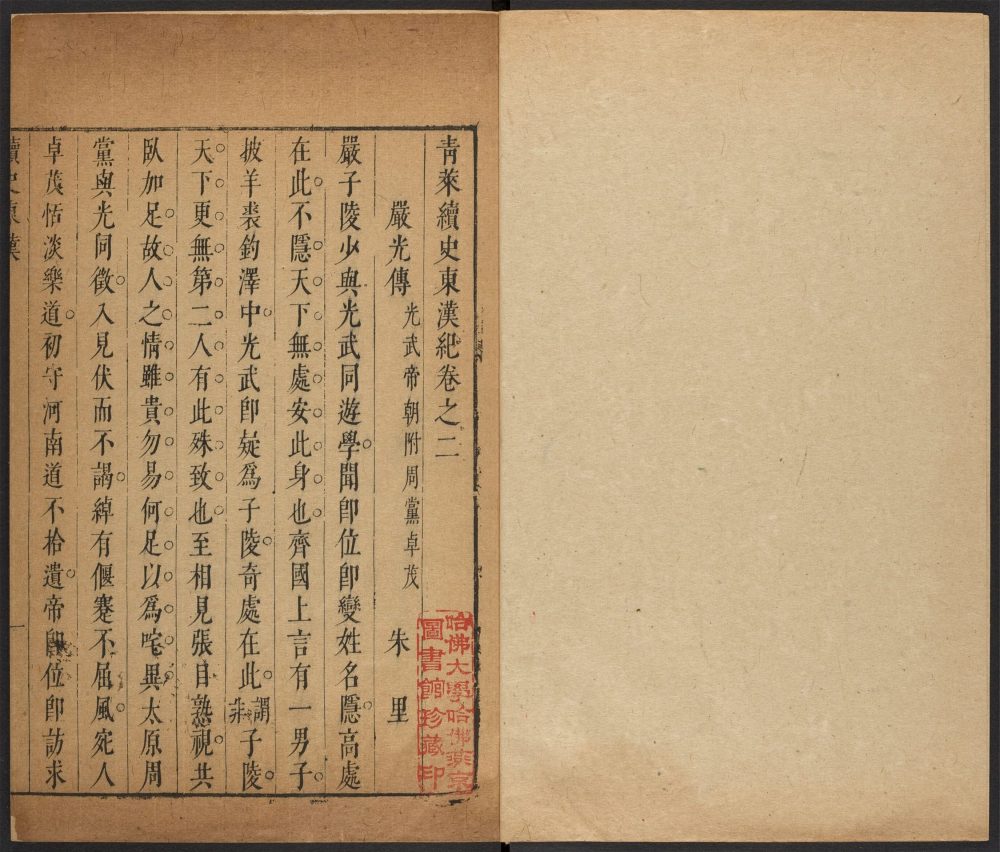 青萊續史東漢紀卷之二
嚴光傳 光武帝朝附周黨卓茂 朱里
嚴子陵少與光武同遊學聞卽位卽變姓名隱高處
在此不隱天下無處安此身也齊國上言有一男子
披羊裘釣澤中光武卽疑爲子陵奇處在此謂非子陵
天下更無第二人有此殊致也至相見張目熟視共
臥加足故人之情雖貴勿易何足以爲咤異太原周
黨與光同徵入見伏而不謁綽有偃蹇不屈風宛人
卓茂恬淡樂道初守河南道不拾遺帝卽位卽訪求
續史東漢
一
哈佛大學哈佛燕京
圖書館珍藏印